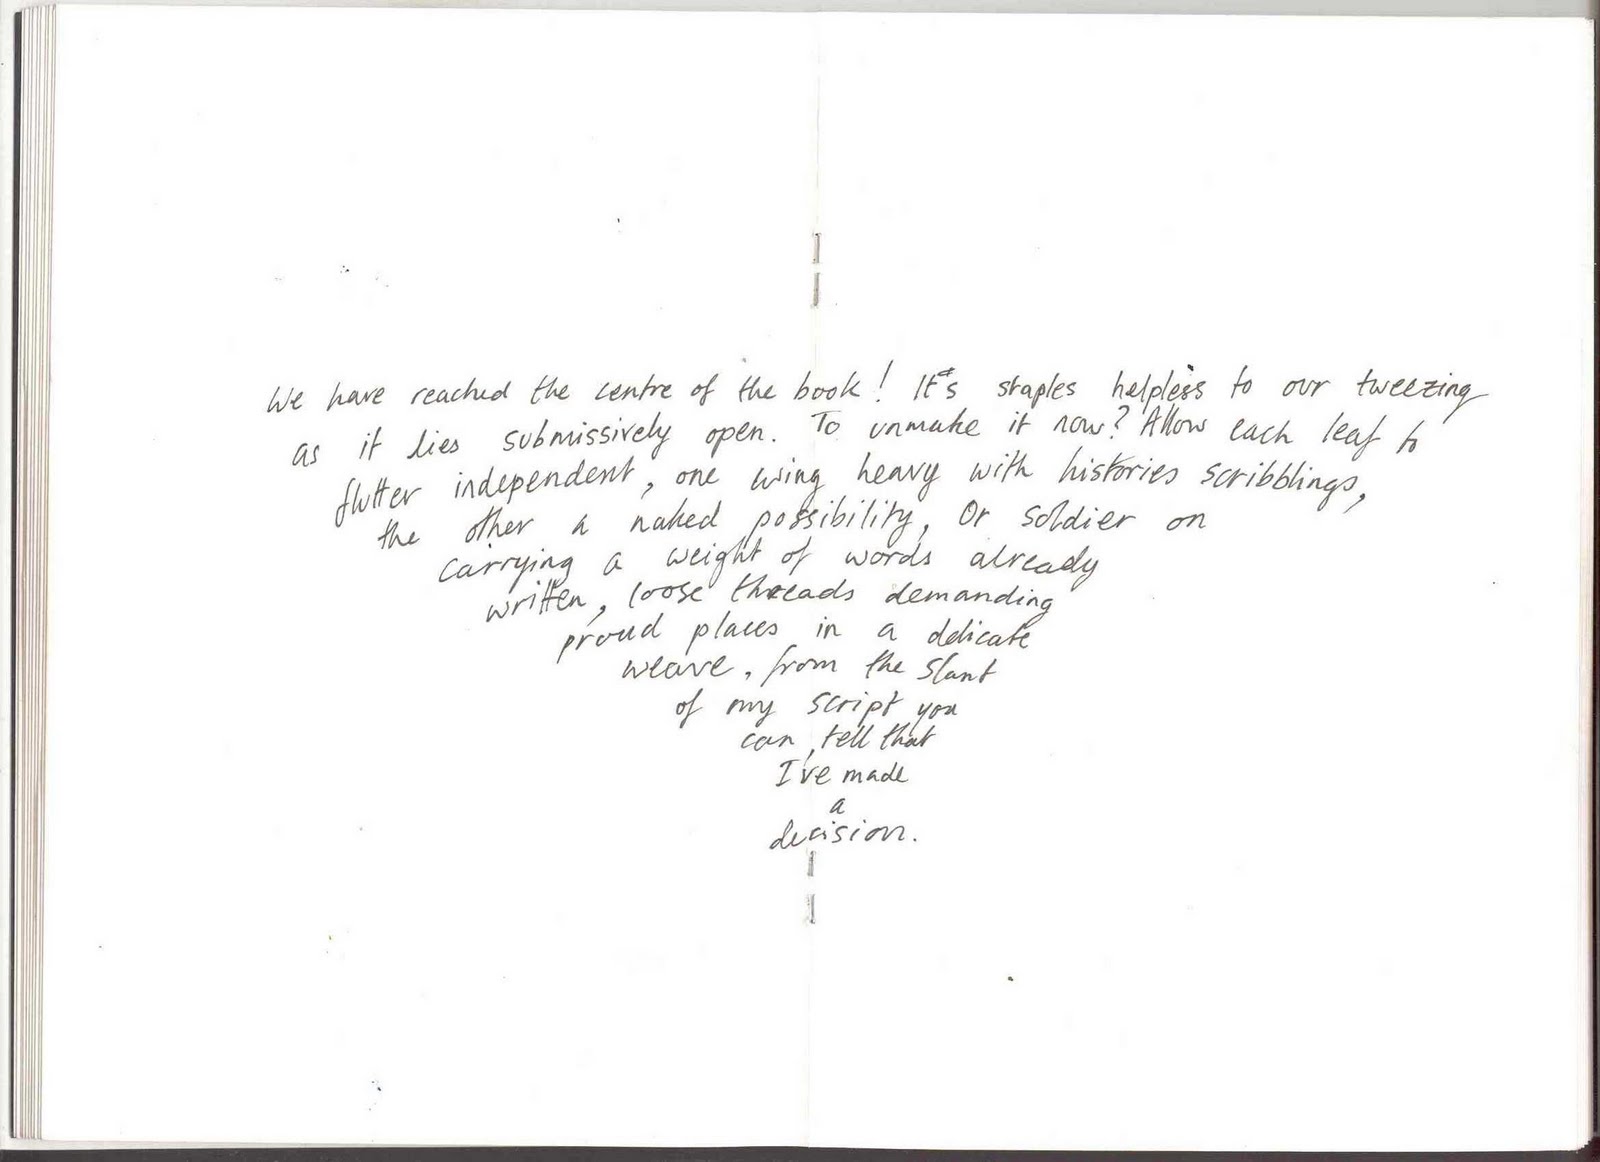 We have reached the centre of the book! It's staples helpless to our tweezing
as it lies submissively open. To unmake it now? Allow each leaf to
flutter independent, one wing heavy with histories scribblings,
the other a naked possibility, Or soldier on
carrying a weight of words already
written, loose threads demanding
proud places in a delicate
weave, from the slant
of my script you
can, tell that
I've made
a
decision.